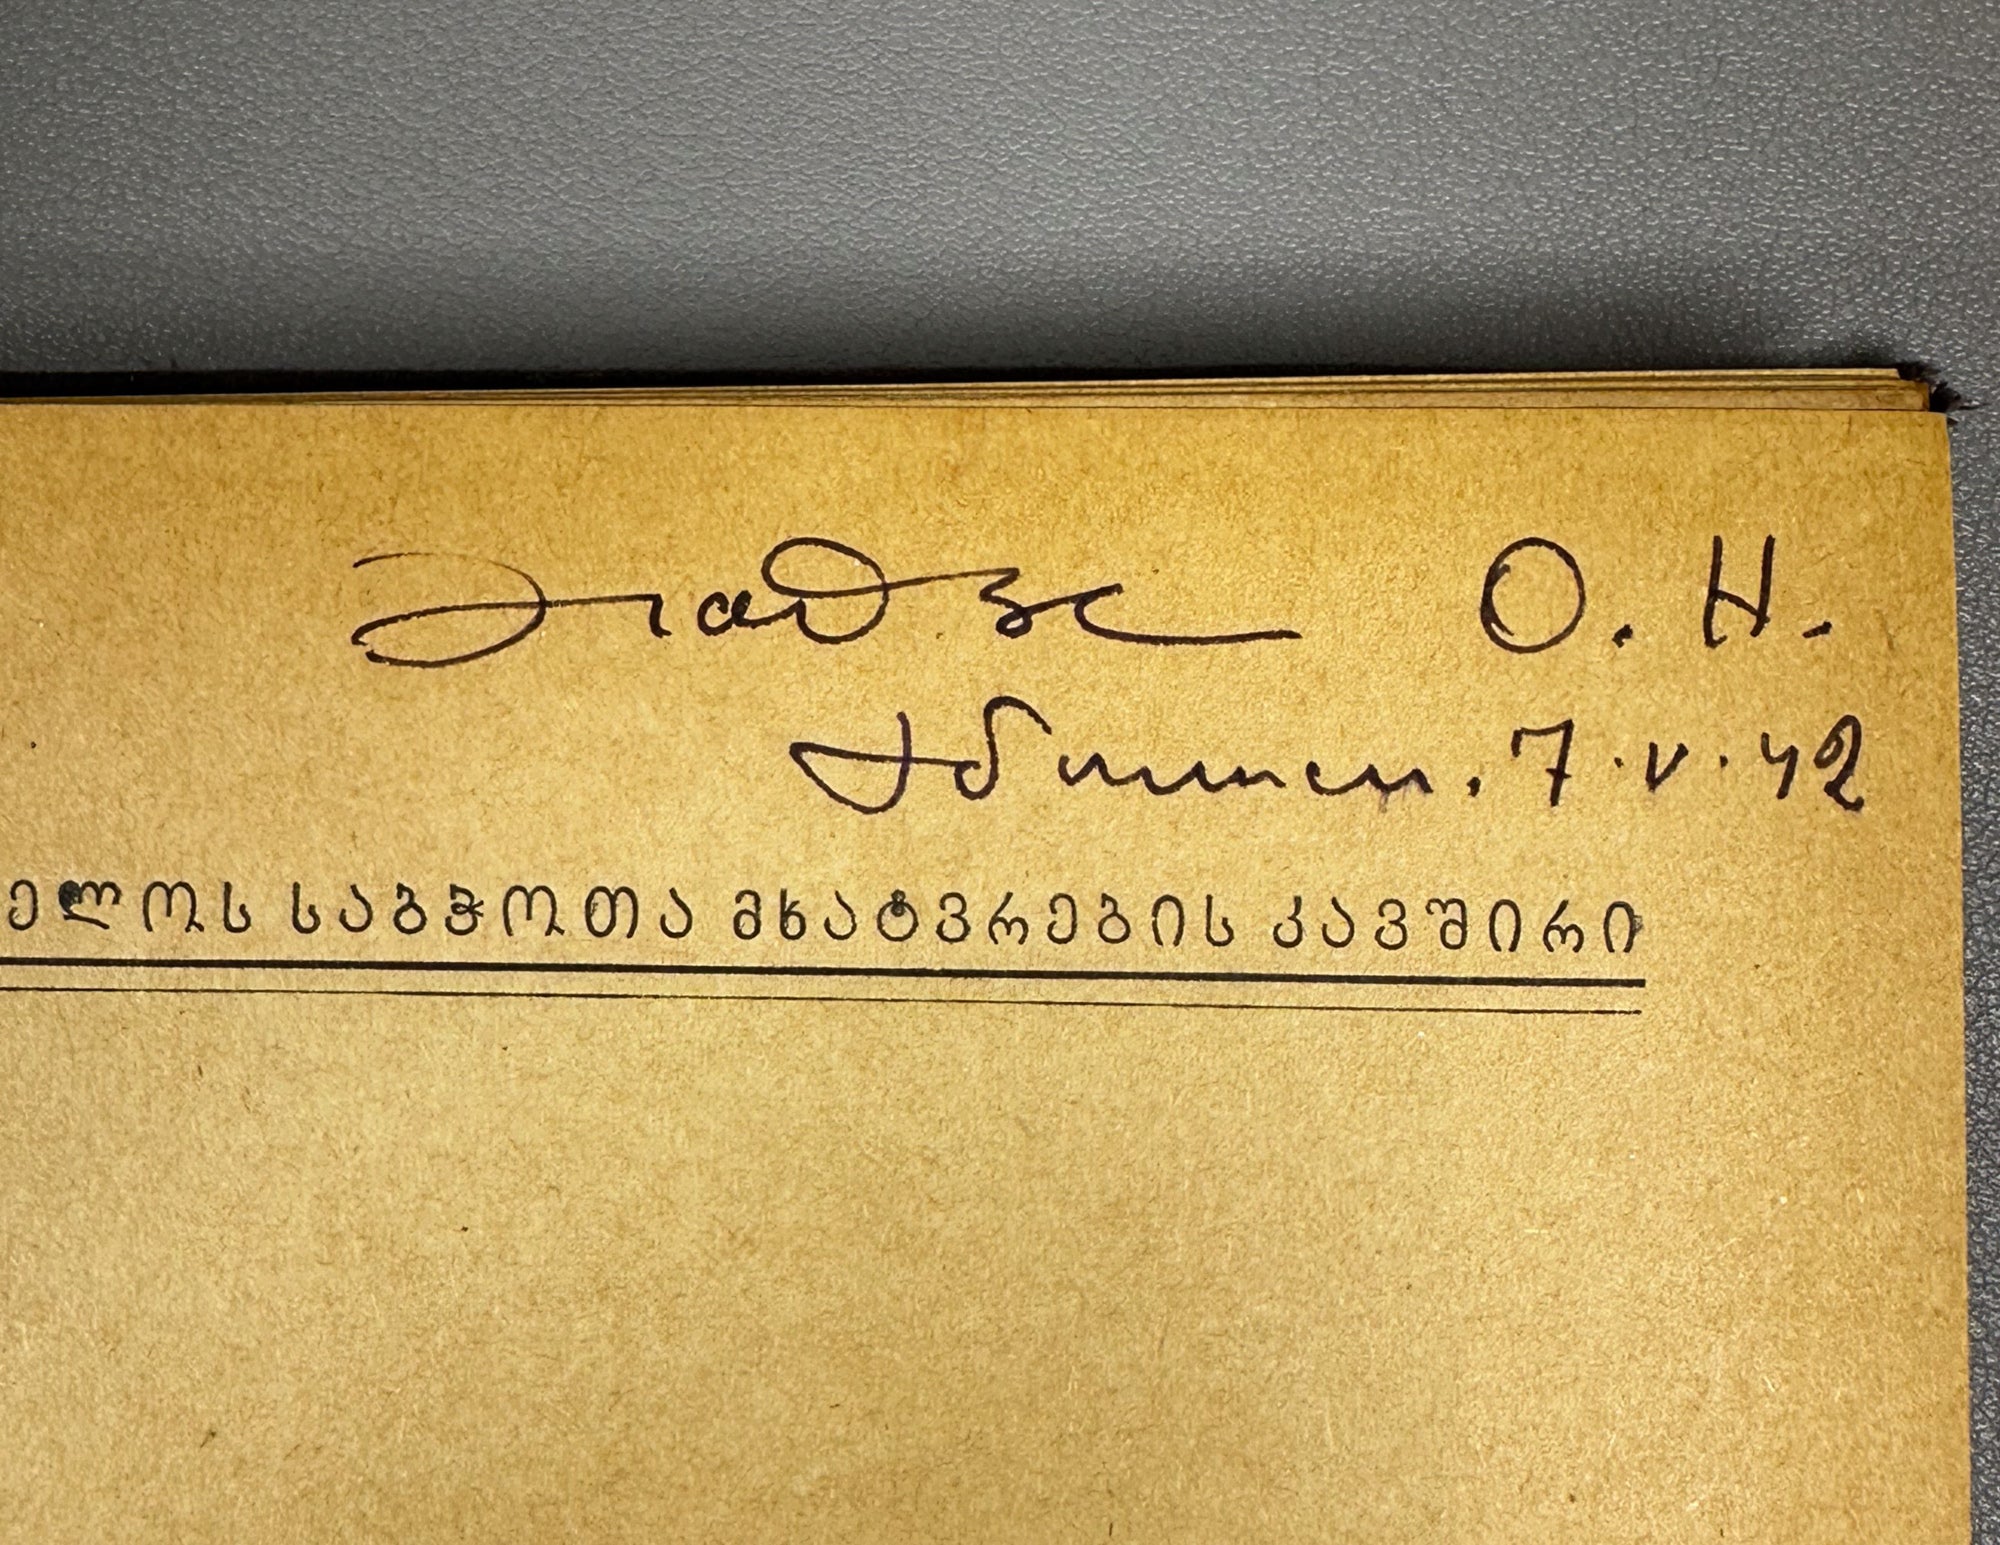 Эгадзе О. Н.
Тбилиси. 7.V.42
ელოს საბჭოთა მხატვრების კავშირი